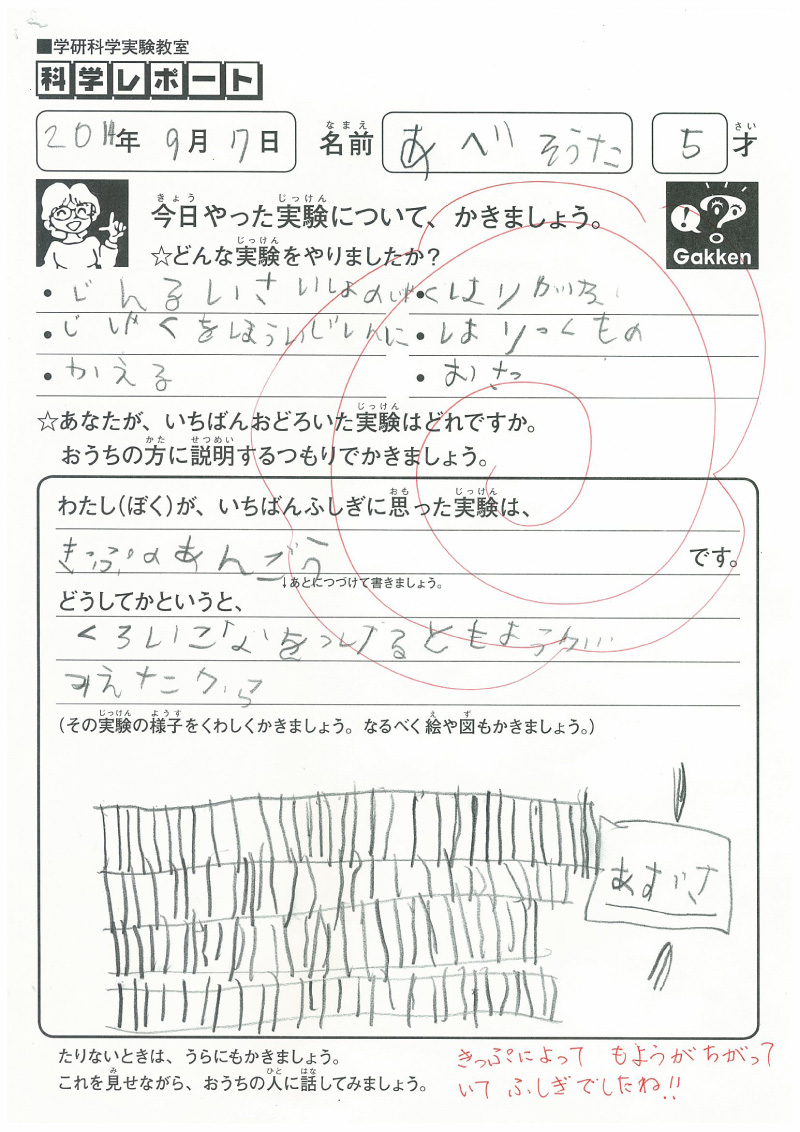 ■学研科学実験教室
科学レポート
2014年 9月 17日 名前 あべ そうた 5才
なまえ さい
きょう じっけん
今日やった実験について、かきましょう。
じっけん
☆どんな実験をやりましたか?
Gakken
・じんるいさいしょのじしゃく
・はりがいた
・じしゃくをほういじしんに
・はりつくもの
・かえる
・おさつ
じっけん
☆あなたが、いちばんおどろいた実験はどれですか。
かた せつめい
おうちの方に説明するつもりでかきましょう。
おも じっけん
わたし(ぼく)が、いちばんふしぎに思った実験は、
きっぷのあんごう です。
↓あとにつづけて書きましょう。
どうしてかというと、
くろいこなをつけるともようが
みえたから
じっけん ようす え ず
(その実験の様子をくわしくかきましょう。なるべく絵や図もかきましょう。)
あすかさ
たりないときは、うらにもかきましょう。
み ひと はな
これを見せながら、おうちの人に話してみましょう。
きっぷによって もようがちがって
いて ふしぎでしたね!!